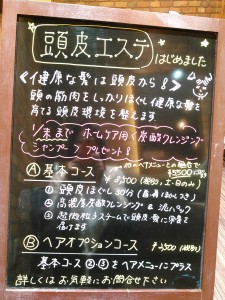 頭皮エステ はじめました
《健康な髪は頭皮から！》
頭の筋肉をしっかりほぐし健康な髪を
育てる頭皮環境を整えます。
1/末まで ホームケア用〈炭酸クレンジング
シャンプー〉プレゼント！
Ⓐ 基本コース
¥3,500 (税別)
① 頭皮ほぐし 30分
② 高濃度炭酸クレンジング & 泡パック
③ 超微粒子スチームで頭皮・髪に栄養を
届けます
Ⓑ ヘアオプションコース ¥3,500 (税別)
基本コース ②③をヘアメニューにプラス
詳しくはお気軽にお問合せ下さい